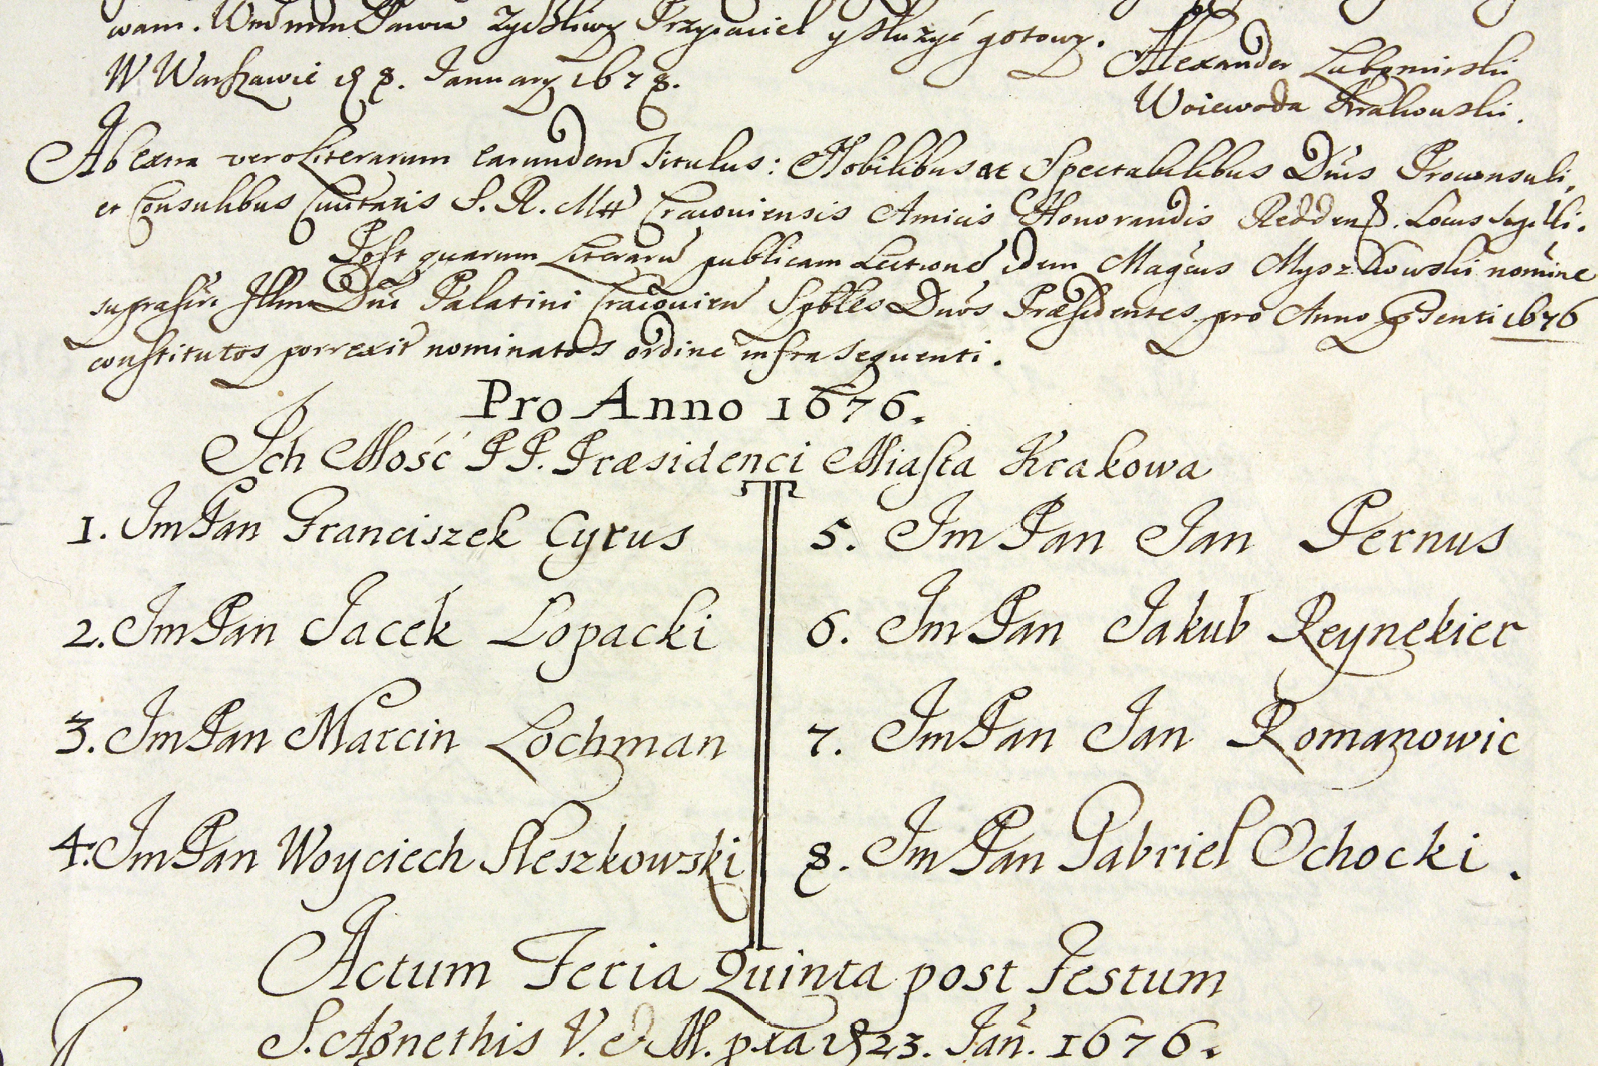 wam. Wm mm Panu Zycżliwy Przyiaciel y służyć gotowy.
Alexander Lubomirski
W Warszawie d 8. January 1676.
Woiewoda Krakowski.
Ab extra vero Literarum earundem Titulus: Nobilibus ac Spectabilibus Dnis Proconsuli,
et Consulibus Civitatis S. R. Mtt Cracouiensis Amicis Honorandis Redden. Locus Sigilli.
Post quarum Literarũ publicam Lectionē idem Magcus Myszkowski nomine
suprascr. Illmi Dni Palatini Cracouien Spbles Dnos Præsidentes pro Anno pnti 1676
constitutos porrexit nominatos ordine infra sequenti.
Pro Anno 1676.
Ich Mość PP. Præsidenci Miasta Krakowa
1. Im Pan Franciszek Cyrus
2. Im Pan Jacek Lopacki
3. Im Pan Marcin Lochman
4. Im Pan Woyciech Sleszkowski
5. Im Pan Jan Pernus
6. Im Pan Jakub Reynekier
7. Im Pan Jan Romanowic
8. Im Pan Gabriel Ochocki.
Actum Feria Quinta post Festum
S. Agnethis V. et M. pra d 23. Jan. 1676.